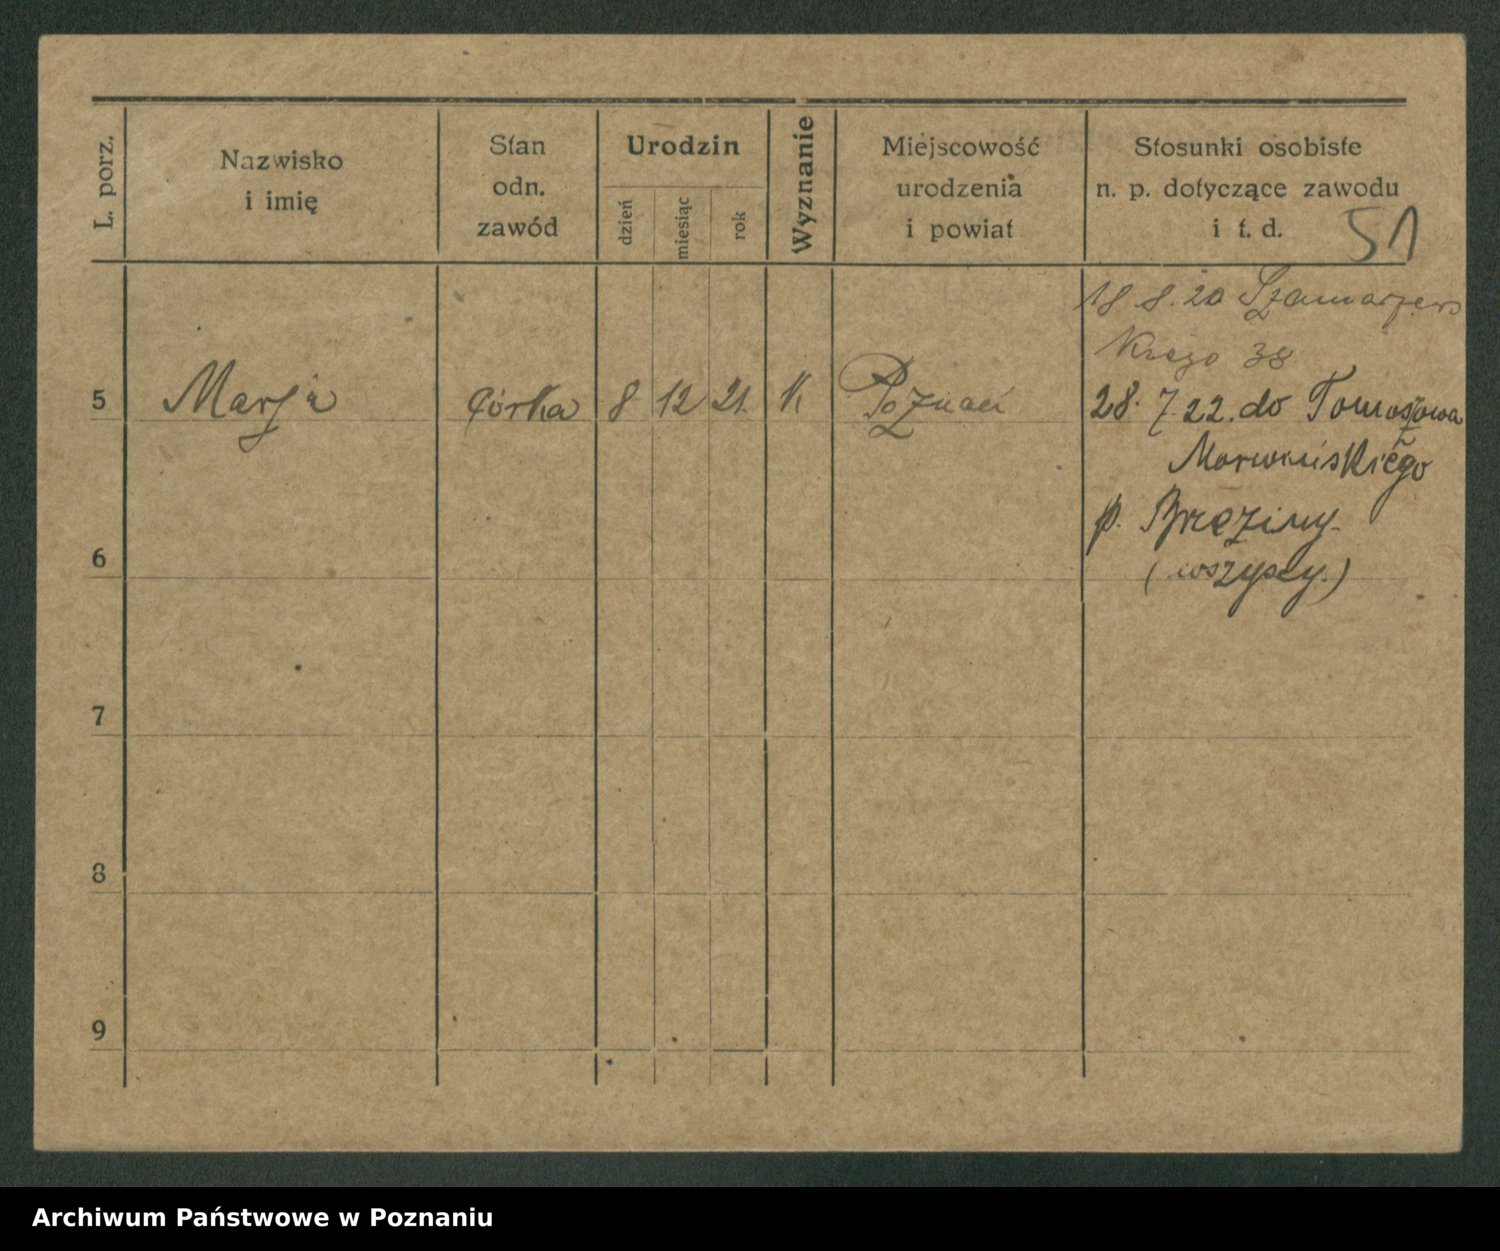 L. porz.
Nazwisko
i imię
Stan
odn.
zawód
Urodzin
dzień
miesiąc
rok
Wyznanie
Miejscowość
urodzenia
i powiat
Stosunki osobiste
n. p. dotyczące zawodu
i t. d.
51
18. 8. 20 Szamarzews
kiego 38
5 Marja córka 8 12 21. K Poznań 28. 7. 22. do Tomaszowa
p. Brzeziny.
6
(wszyscy.)
7
8
9
Archiwum Państwowe w Poznaniu